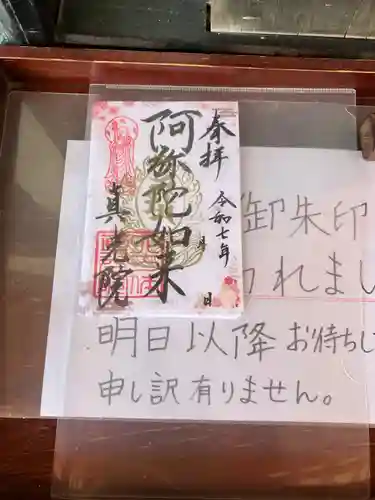 奉拝
令和七年 月 日
阿弥陀如来
真光院
御朱印
れまし
明日以降お待ちし
申し訳有りません。